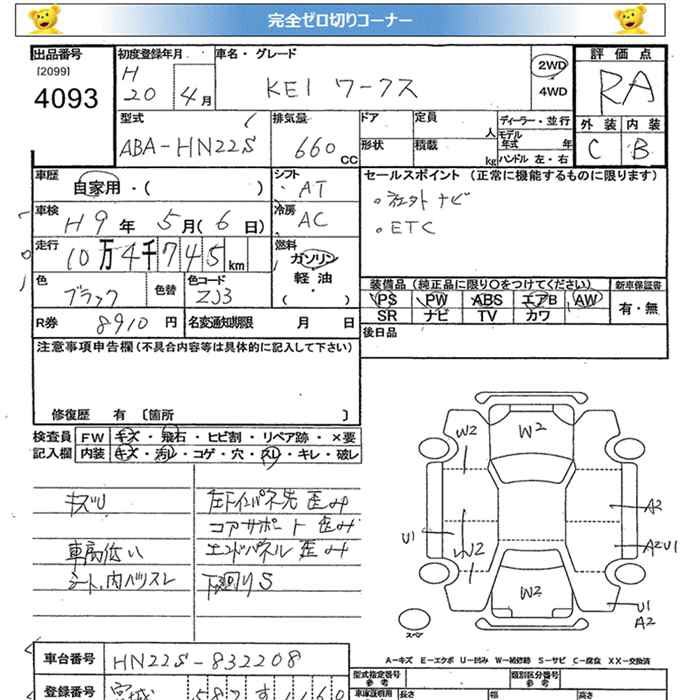 完全ゼロ切りコーナー
出品番号
[2099]
4093
初度登録年月
H
20 4月
車名・グレード
KEI ワークス
2WD
4WD
評価点
RA
外装 内装
C B
型式
ABA-HN22S
排気量
660 cc
ドア 定員 人
形状 積載 kg
ディーラー・並行
モデル年式 年
ハンドル 左・右
車歴
自家用・( )
シフト
AT
セールスポイント (正常に機能するものに限ります)
・社外ナビ
・ETC
車検
H9年 5月(6日)
冷房
AC
走行
10万4千745km
燃料
ガソリン
軽油
( )
色
ブラック
色替
色コード
ZJ3
装備品(純正品に限り○をつけてください)
PS PW ABS エアB AW
SR ナビ TV カワ
新車保証書
有・無
R券 8910円
名変通知期限 月 日
後日品
注意事項申告欄(不具合内容等は具体的に記入して下さい)
修復歴 有 〔箇所 〕
検査員
記入欄
FW キズ・飛石・ヒビ割・リペア跡・×要
内装 キズ・汚レ・コゲ・穴・スレ・キレ・破レ
キズU
車高低い
シート、内ハリスレ
左下インパネ先 歪み
コアサポート 歪み
エンドパネル 歪み
下廻りS
W2
W2
A2
U1
W2
A2U1
W2
U1
A2
スペア
A—キズ E—エクボ U—凹み W—補修跡 S—サビ C—腐食 XX—交換済
車台番号 HN22S-832208
登録番号 宮城 587
型式指定番号
参考
類別区分番号
参考
車庫証明用
長さ 幅 高さ